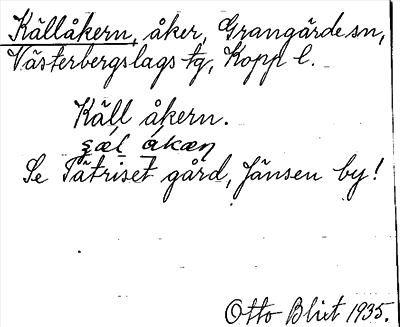 Källåkern, åker, Grangärde sn,
Västerbergslags tg, Kopp l.
Käll åkern.
Se Pätriset gård, Jänsen by!
Otto Blixt 1935.